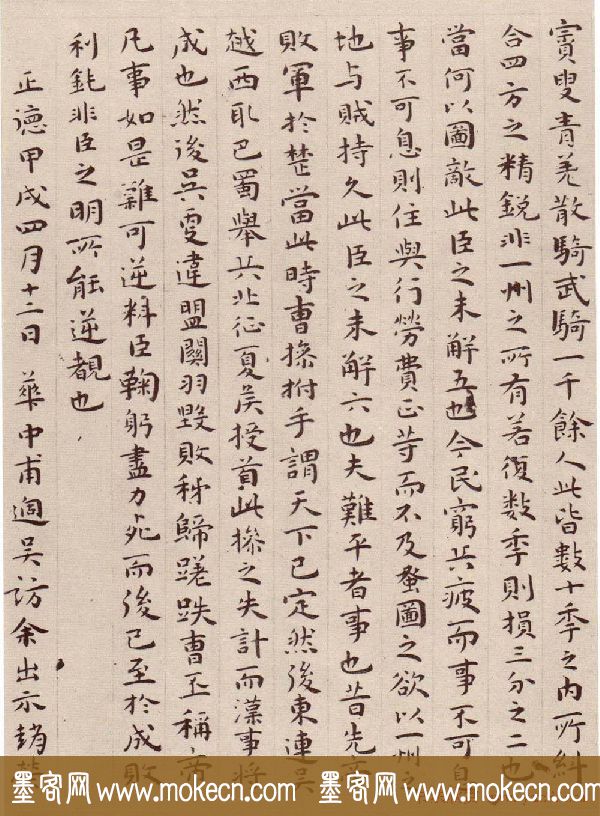 賨叟青羌散騎武騎一千餘人此皆數十季之內所糾
合四方之精銳非一州之所有若復數季則損三分之二也
當何以圖敵此臣之未解五也今民窮兵疲而事不可息
事不可息則住與行勞費正等而不及蚤圖之欲以一州之
地与賊持久此臣之未解六也夫難平者事也昔先帝
敗軍於楚當此時曹操拊手謂天下已定然後東連吳
越西取巴蜀舉兵北征夏矦授首此操之失計而漢事將
成也然後吳更違盟關羽毀敗秭歸蹉跌曹丕稱帝
凡事如是難可逆料臣鞠躬盡力死而後已至於成敗
利鈍非臣之明所能逆覩也
正德甲戌四月十二日 華中甫過吳訪余出示趙
墨客网 www.mokecn.com 墨客网 www.mokecn.com